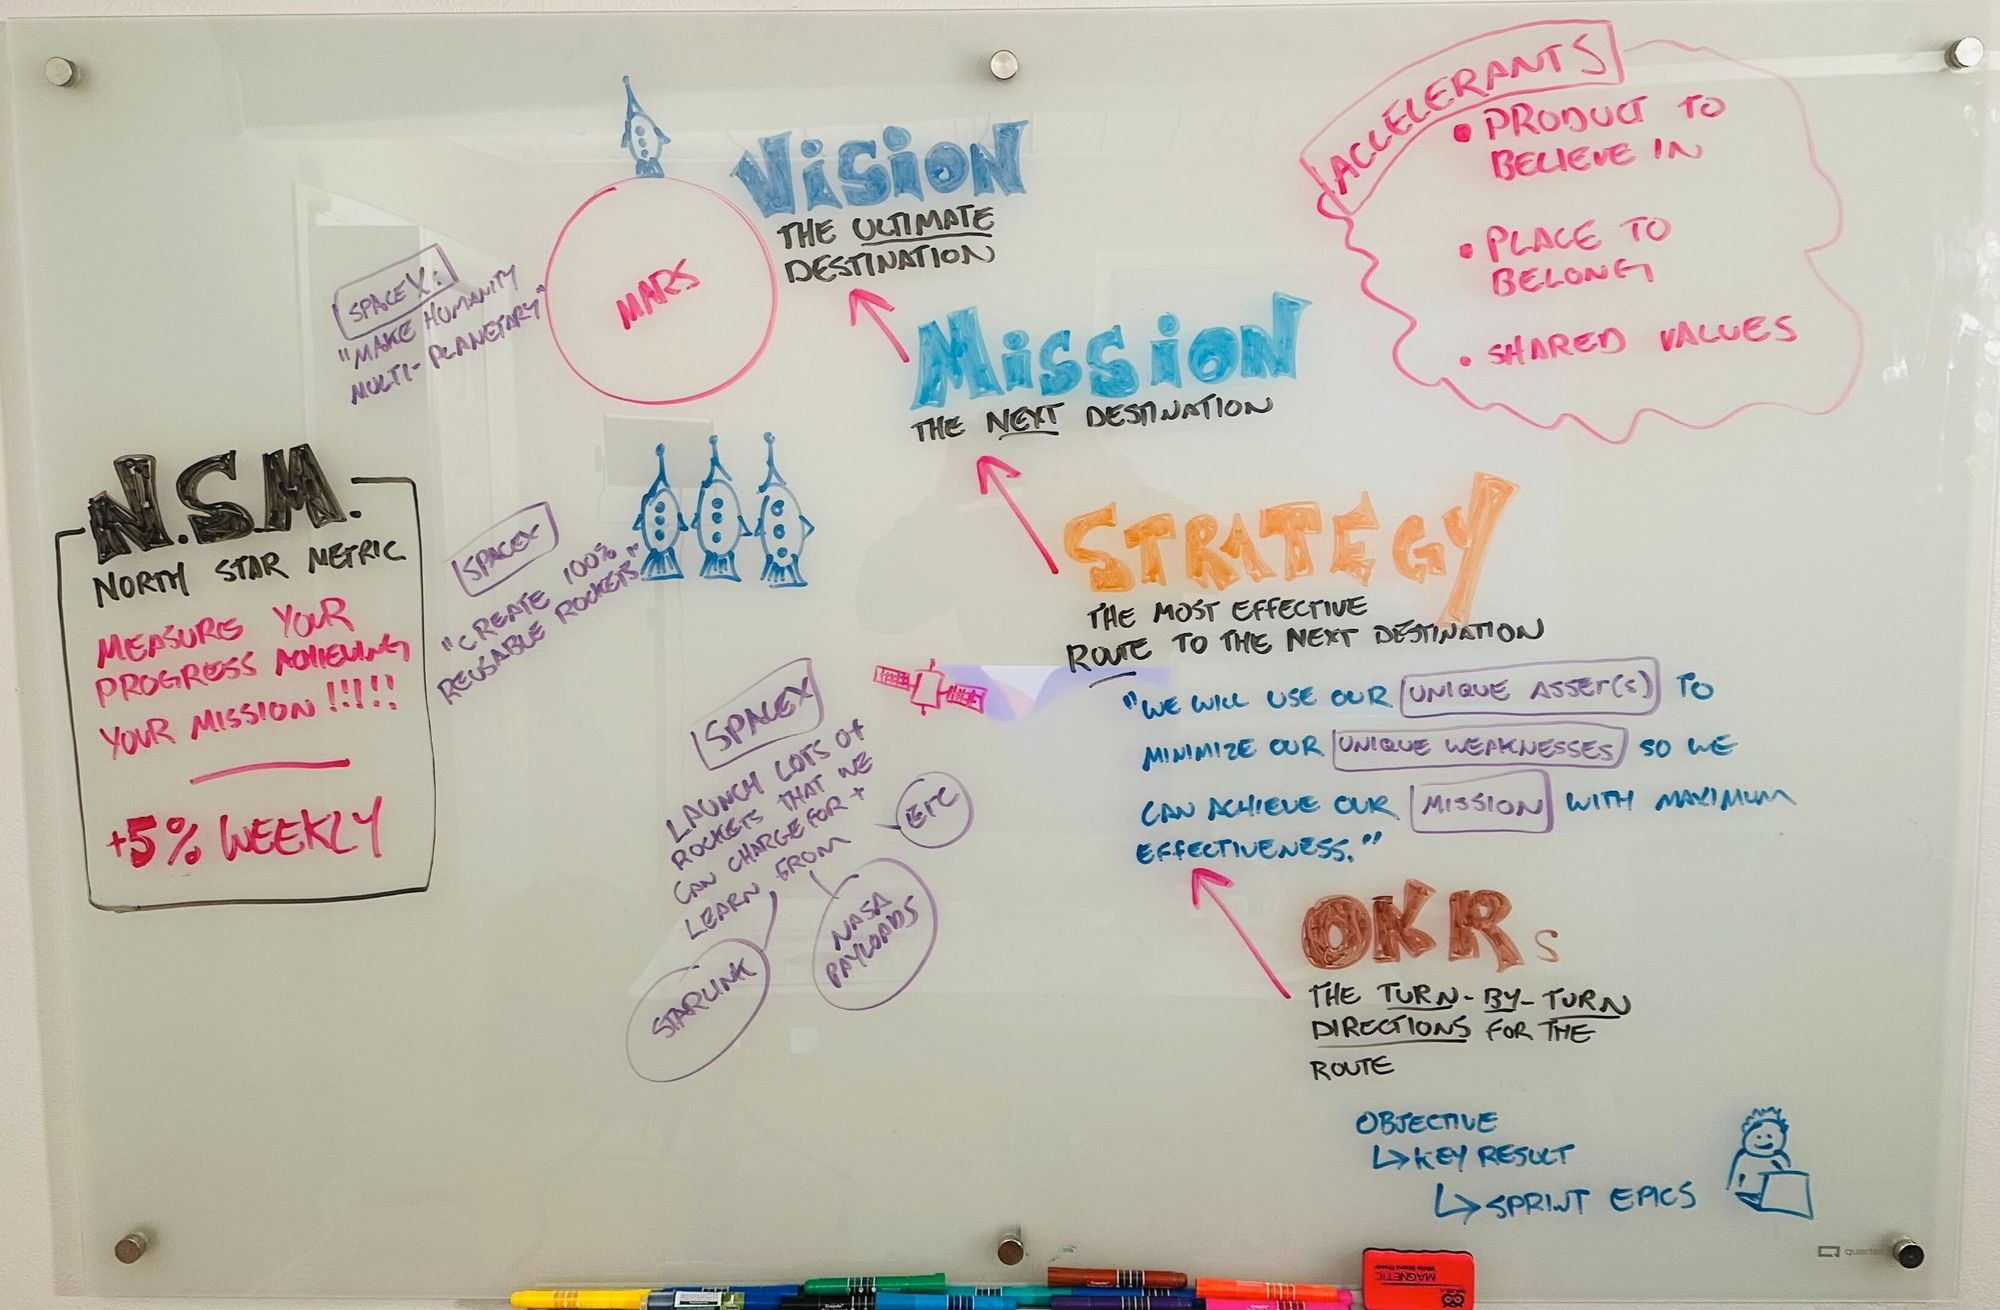 VISION
THE ULTIMATE
DESTINATION
MARS
SPACEX:
"MAKE HUMANITY
MULTI-PLANETARY"
MISSION
THE NEXT DESTINATION
SPACEX
"CREATE 100%
REUSABLE ROCKETS"
STRATEGY
THE MOST EFFECTIVE
ROUTE TO THE NEXT DESTINATION
"WE WILL USE OUR UNIQUE ASSET(S) TO
MINIMIZE OUR UNIQUE WEAKNESSES SO WE
CAN ACHIEVE OUR MISSION WITH MAXIMUM
EFFECTIVENESS."
SPACEX
LAUNCH LOTS OF
ROCKETS THAT WE
CAN CHARGE FOR +
LEARN FROM
ETC
NASA
PAYLOADS
STARLINK
OKRs
THE TURN-BY-TURN
DIRECTIONS FOR THE
ROUTE
OBJECTIVE
↳ KEY RESULT
↳ SPRINT EPICS
N.S.M.
NORTH STAR METRIC
MEASURE YOUR
PROGRESS ACHIEVING
YOUR MISSION!!!!!
+5% WEEKLY
ACCELERANTS
• PRODUCT TO
BELIEVE IN
• PLACE TO
BELONG
• SHARED VALUES
MAGNETIC